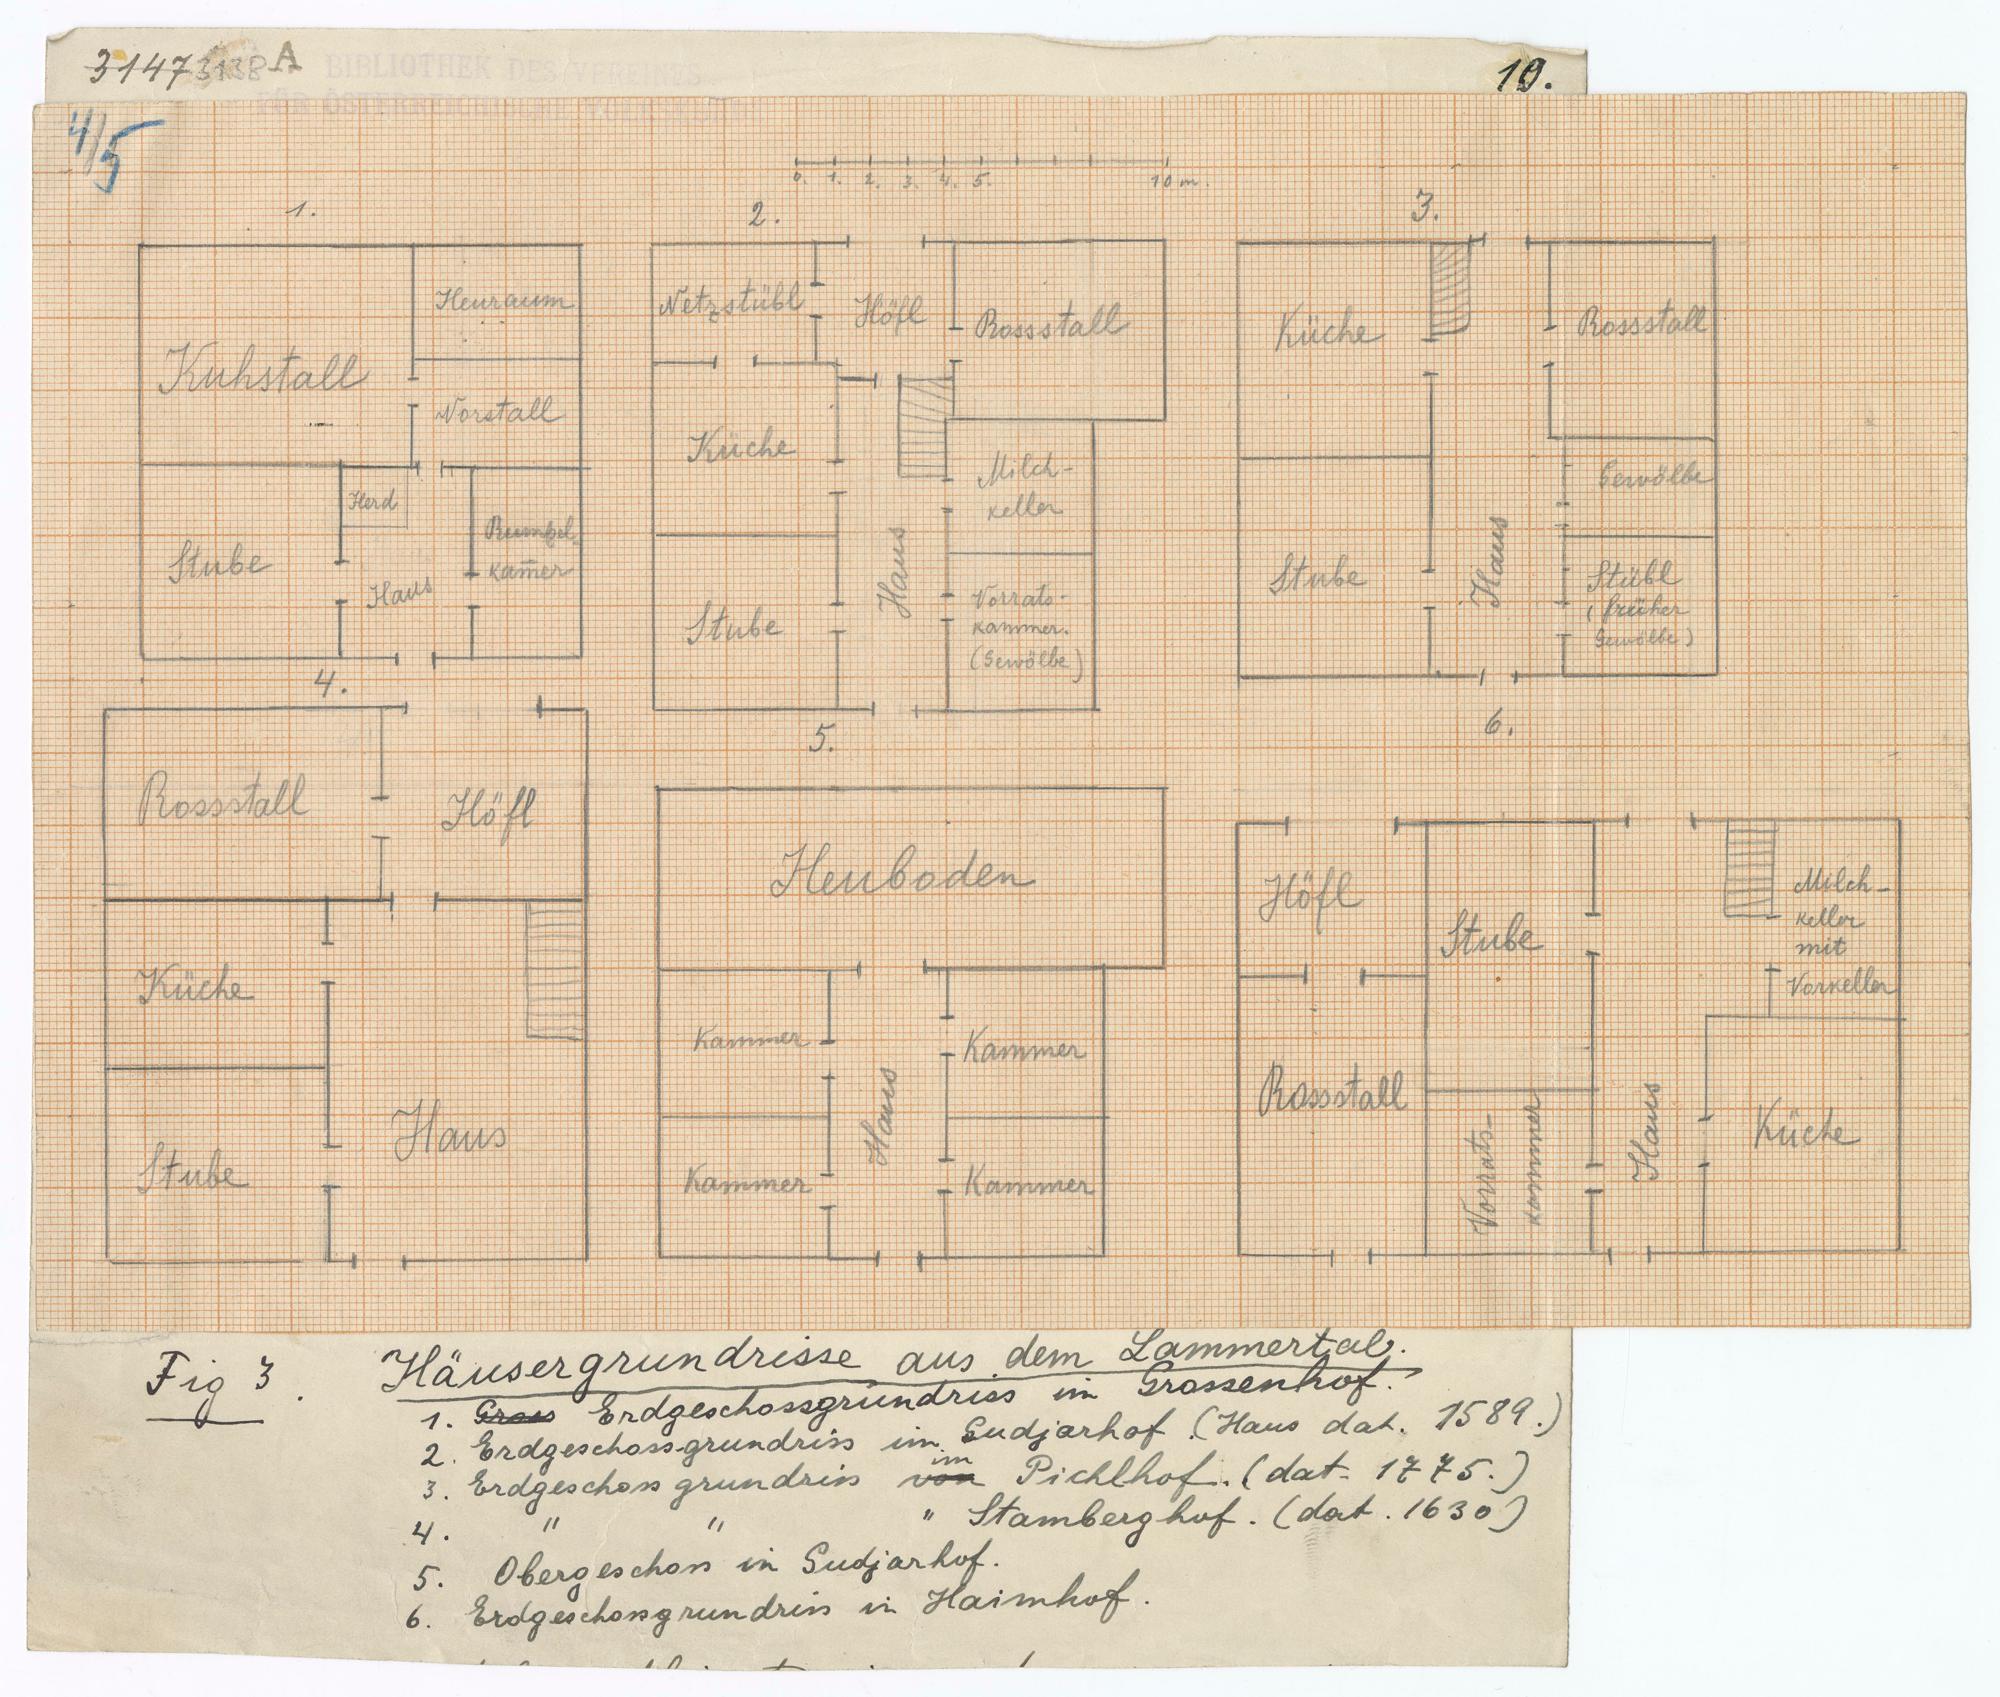 3147 3138 A
BIBLIOTHEK DES VEREINES
FÜR ÖSTERREICHISCHE VOLKSKUNDE
10.
4/5
0. 1. 2. 3. 4. 5. 10 m.
1.
Kuhstall
Heuraum
Vorstall
Stube
Herd
Haus
Rumpel-
kam̅er
2.
Netzstübl
Höfl
Rossstall
Küche
Milch-
keller
Stube
Haus
Vorrats-
kammer.
(Gewölbe)
3.
Küche
Rossstall
Gewölbe
Stube
Haus
Stübl
(früher
Gewölbe)
4.
Rossstall
Höfl
Küche
Stube
Haus
5.
Heuboden
Kammer
Kammer
Haus
Kammer
Kammer
6.
Höfl
Stube
Milch-
keller
mit
Vorkeller
Rossstall
Vorrats-
kammer
Haus
Küche
Fig 3.
Häusergrundrisse aus dem Lammertal.
1. Gross Erdgeschossgrundriss im Grossenhof.
2. Erdgeschossgrundriss im Gudjarhof. (Haus dat. 1589.)
3. Erdgeschossgrundriss von im Pichlhof. (dat. 1775.)
4. " " " Stamberghof. (dat. 1630)
5. Obergeschoss in Gudjarhof.
6. Erdgeschossgrundriss in Haimhof.